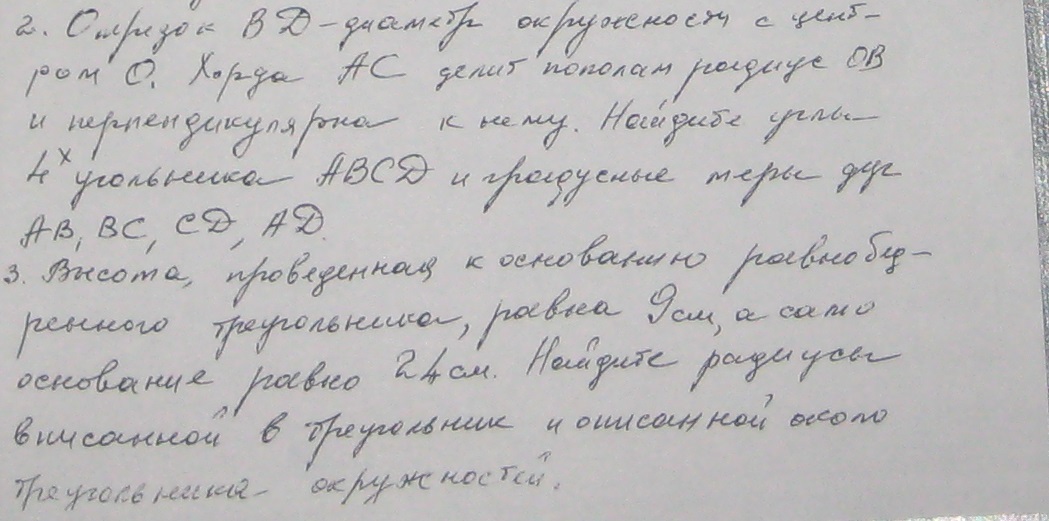 2. Отрезок BD - диаметр окружности с цент-
ром O. Хорда AC делит пополам радиус OB
и перпендикулярна к нему. Найдите углы
4х угольника ABCD и градусные меры дуг
AB, BC, CD, AD.
3. Высота, проведенная к основанию равнобед-
ренного треугольника, равна 9см, а само
основание равно 24см. Найдите радиусы
вписанной в треугольник и описанной около
треугольника окружностей.